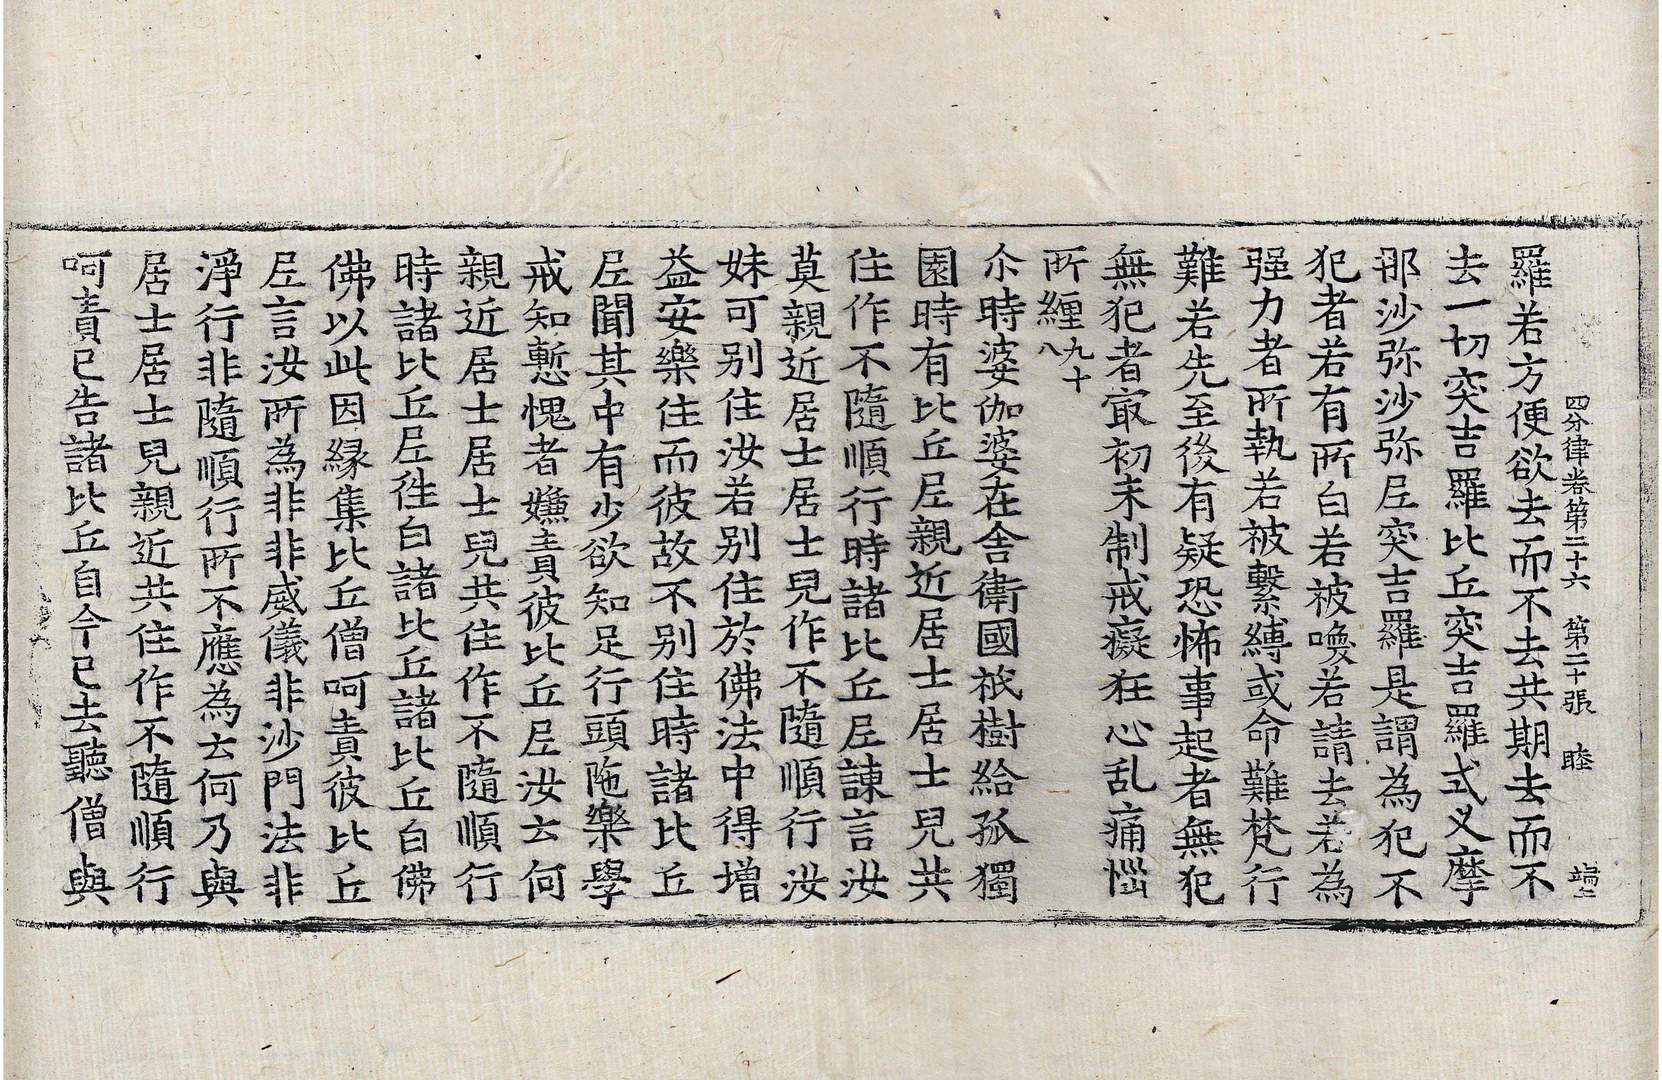 四分律卷第二十六　第二十張　睦
羅若方便欲去而不去共期去而不
去一切突吉羅比丘突吉羅式叉摩
那沙弥沙弥尼突吉羅是謂為犯不
犯者若有所白若被喚若請去若為
强力者所執若被繫縛或命難梵行
難若先至後有疑恐怖事起者無犯
無犯者冣初未制戒癡狂心乱痛惱
所纏九十八
尒時婆伽婆在舍衛國祇樹給孤獨
園時有比丘尼親近居士居士兒共
住作不隨順行時諸比丘尼諫言汝
莫親近居士居士兒作不隨順行汝
妹可别住汝若别住於佛法中得增
益安樂住而彼故不别住時諸比丘
尼聞其中有少欲知足行頭陁樂學
戒知慙愧者嫌責彼比丘尼汝云何
親近居士居士兒共住作不隨順行
時諸比丘尼徃白諸比丘諸比丘白佛
佛以此因緣集比丘僧呵責彼比丘
尼言汝所為非非威儀非沙門法非
淨行非隨順行所不應為云何乃與
居士居士兒親近共住作不隨順行
呵責已告諸比丘自今已去聽僧與